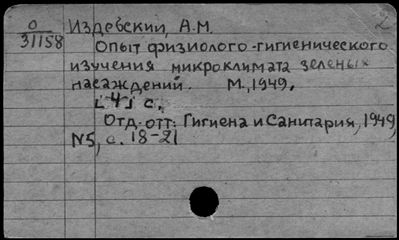 О Издевский, А.М. 2
31158
Опыт физиолого-гигиенического
изучения микроклимата зеленых
насаждений. М., 1949.
[4] с.
Отд. отт.: Гигиена и Санитария, 1949,
N5, с. 18-21